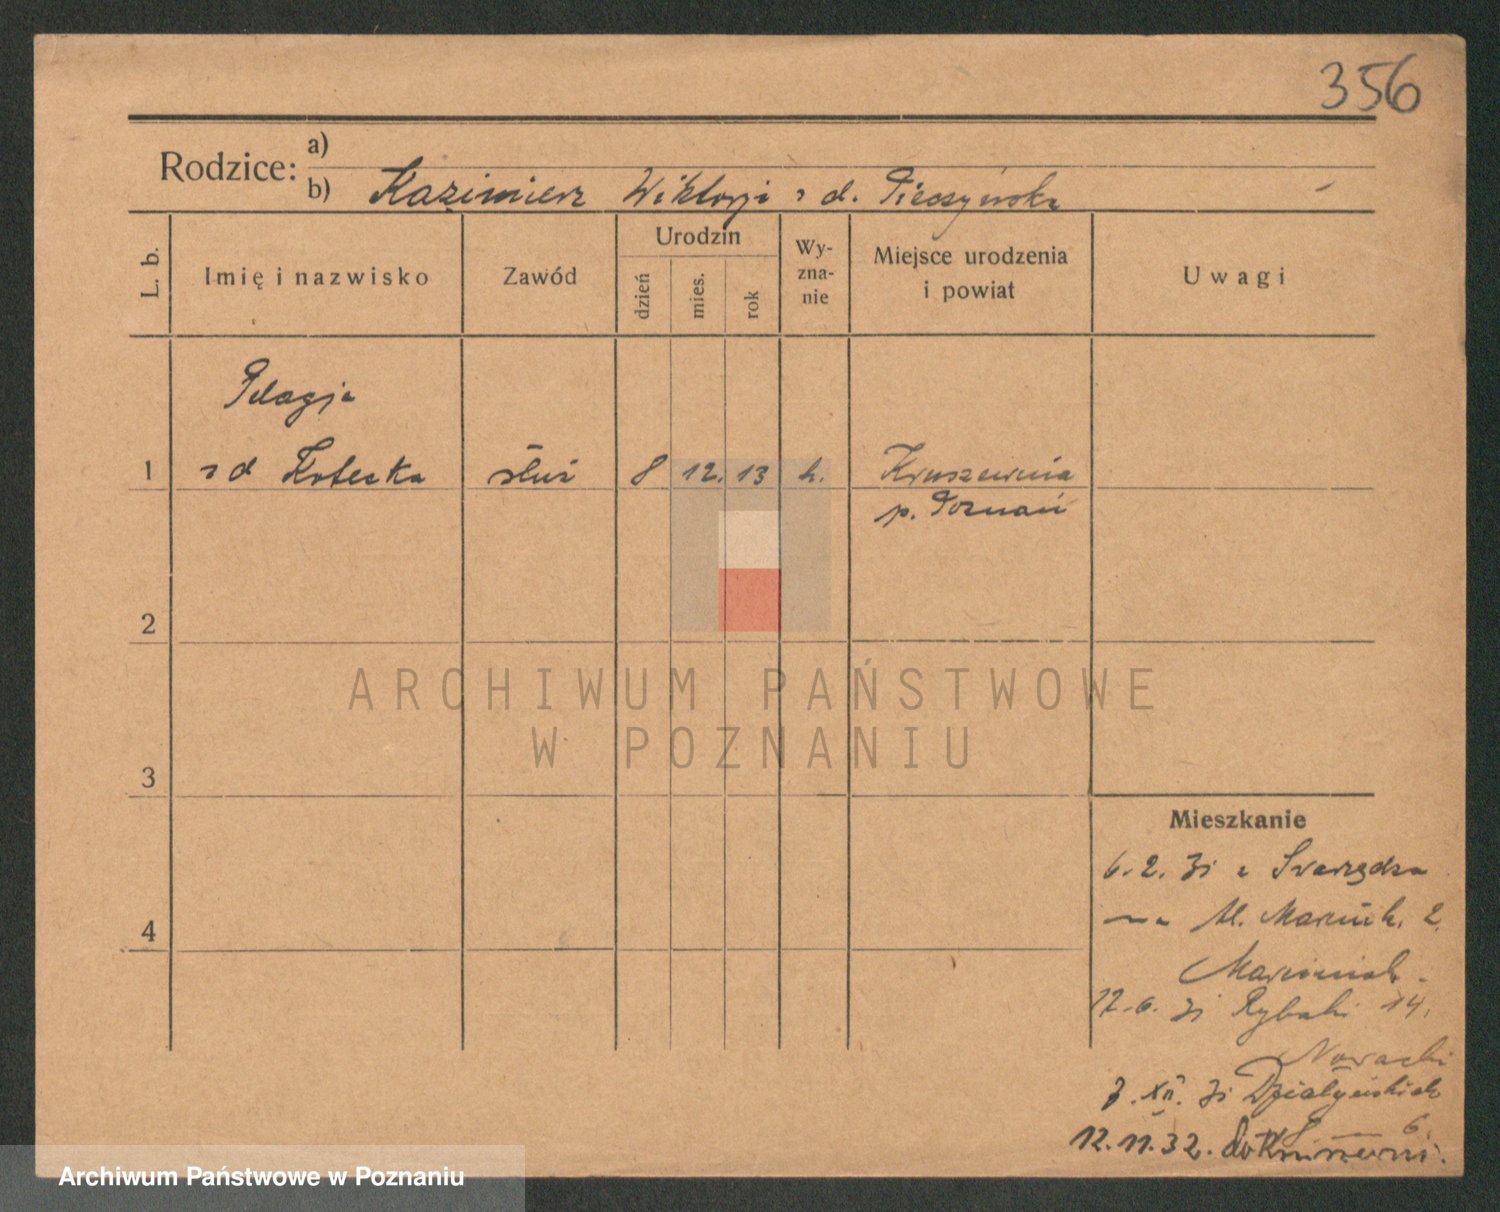 356
Rodzice:
a)
b) Kazimierz Wiktorji z d. Pieczyńska
L. b.
Imię i nazwisko
Zawód
Urodzin
dzień
mies.
rok
Wy-
zna-
nie
Miejsce urodzenia
i powiat
Uwagi
Pelagja
1 z d Kotecka służ 8 12. 13 k. Kruszewnia
p. Poznań
2
ARCHIWUM PAŃSTWOWE
W POZNANIU
3
Mieszkanie
6.2.31 z Swarzędza
4
na Marcink. 2.
Marciniak.
12.6.31 Rybaki 14.
Nowacki
XII. 31 Działyńskich
6.
12.11.32. do Kruszewni.
Archiwum Państwowe w Poznaniu